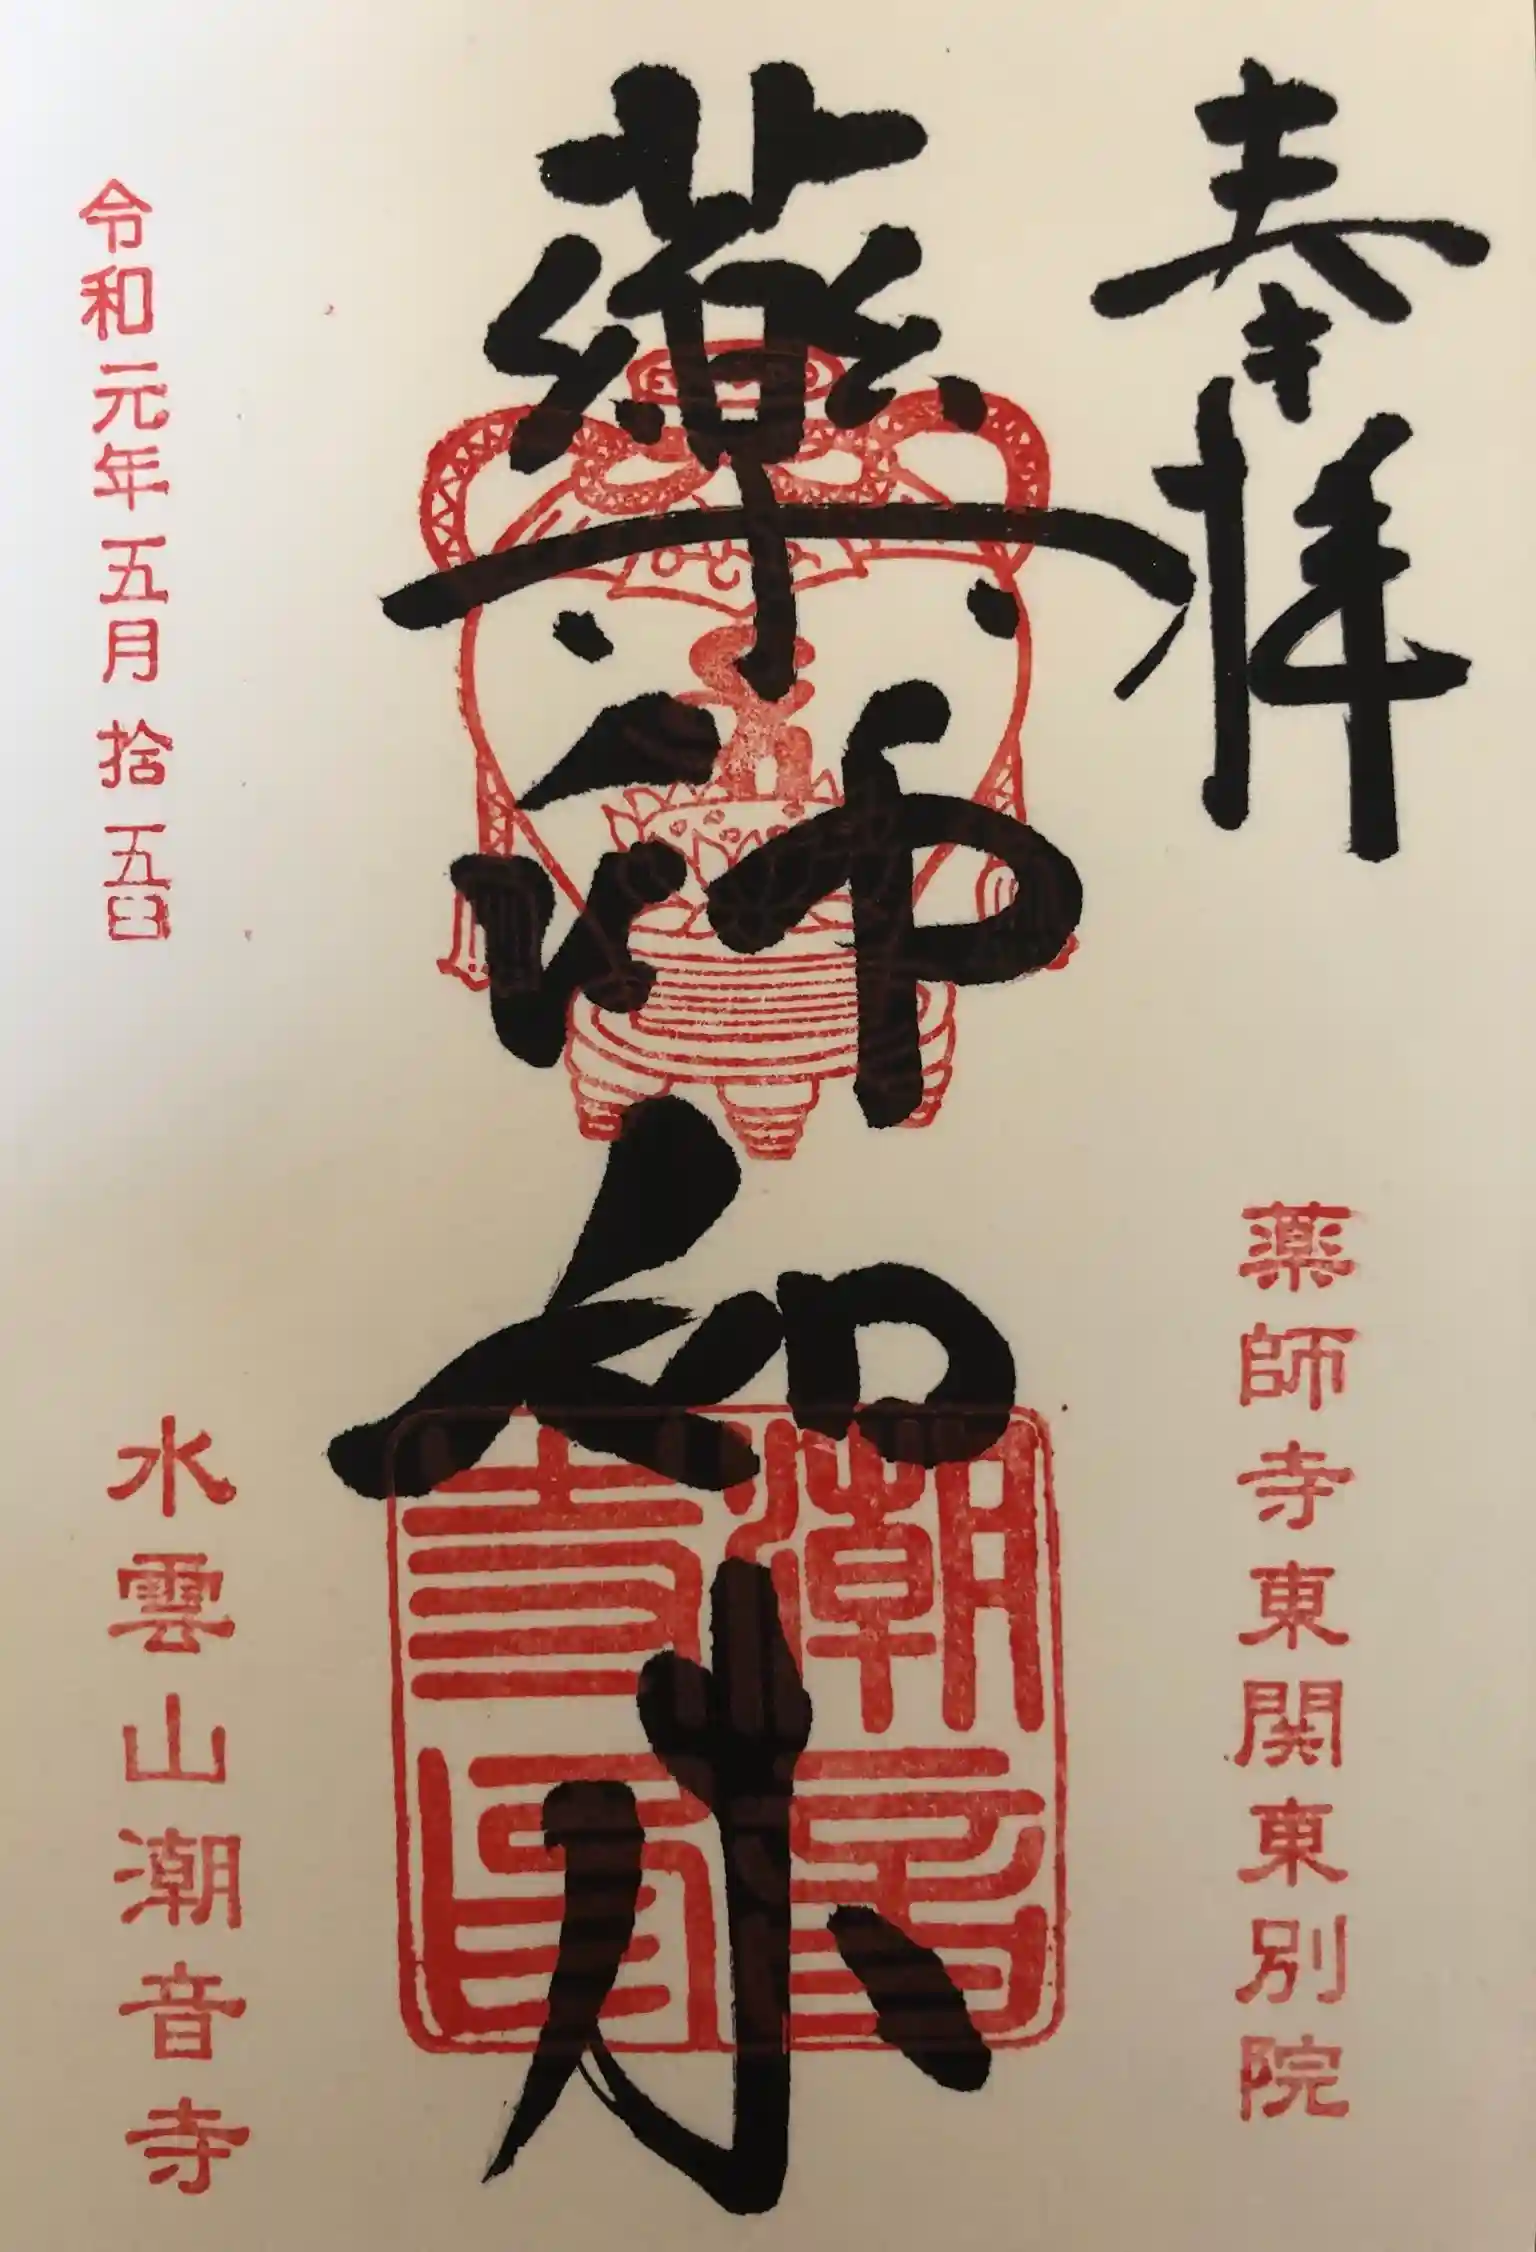 奉拝
薬師寺東関東別院
藥師如来
潮音
寺印
令和元年五月拾五日
水雲山潮音寺